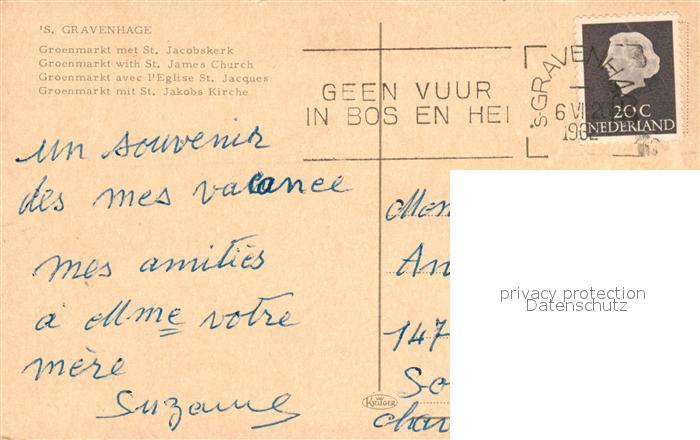 'S. GRAVENHAGE
Groenmarkt met St. Jacobskerk
Groenmarkt with St. James Church
Groenmarkt avec l'Eglise St. Jacques
Groenmarkt mit St. Jakobs Kirche
GEEN VUUR
IN BOS EN HEI
's-GRAVENHA
6 VII
1962
20 C
NEDERLAND
un souvenir
des mes vacance
mes amitiés
à Mme votre
mère
Suzanne
Mon
An
147
So
char
KRÜGER
privacy protection
Datenschutz